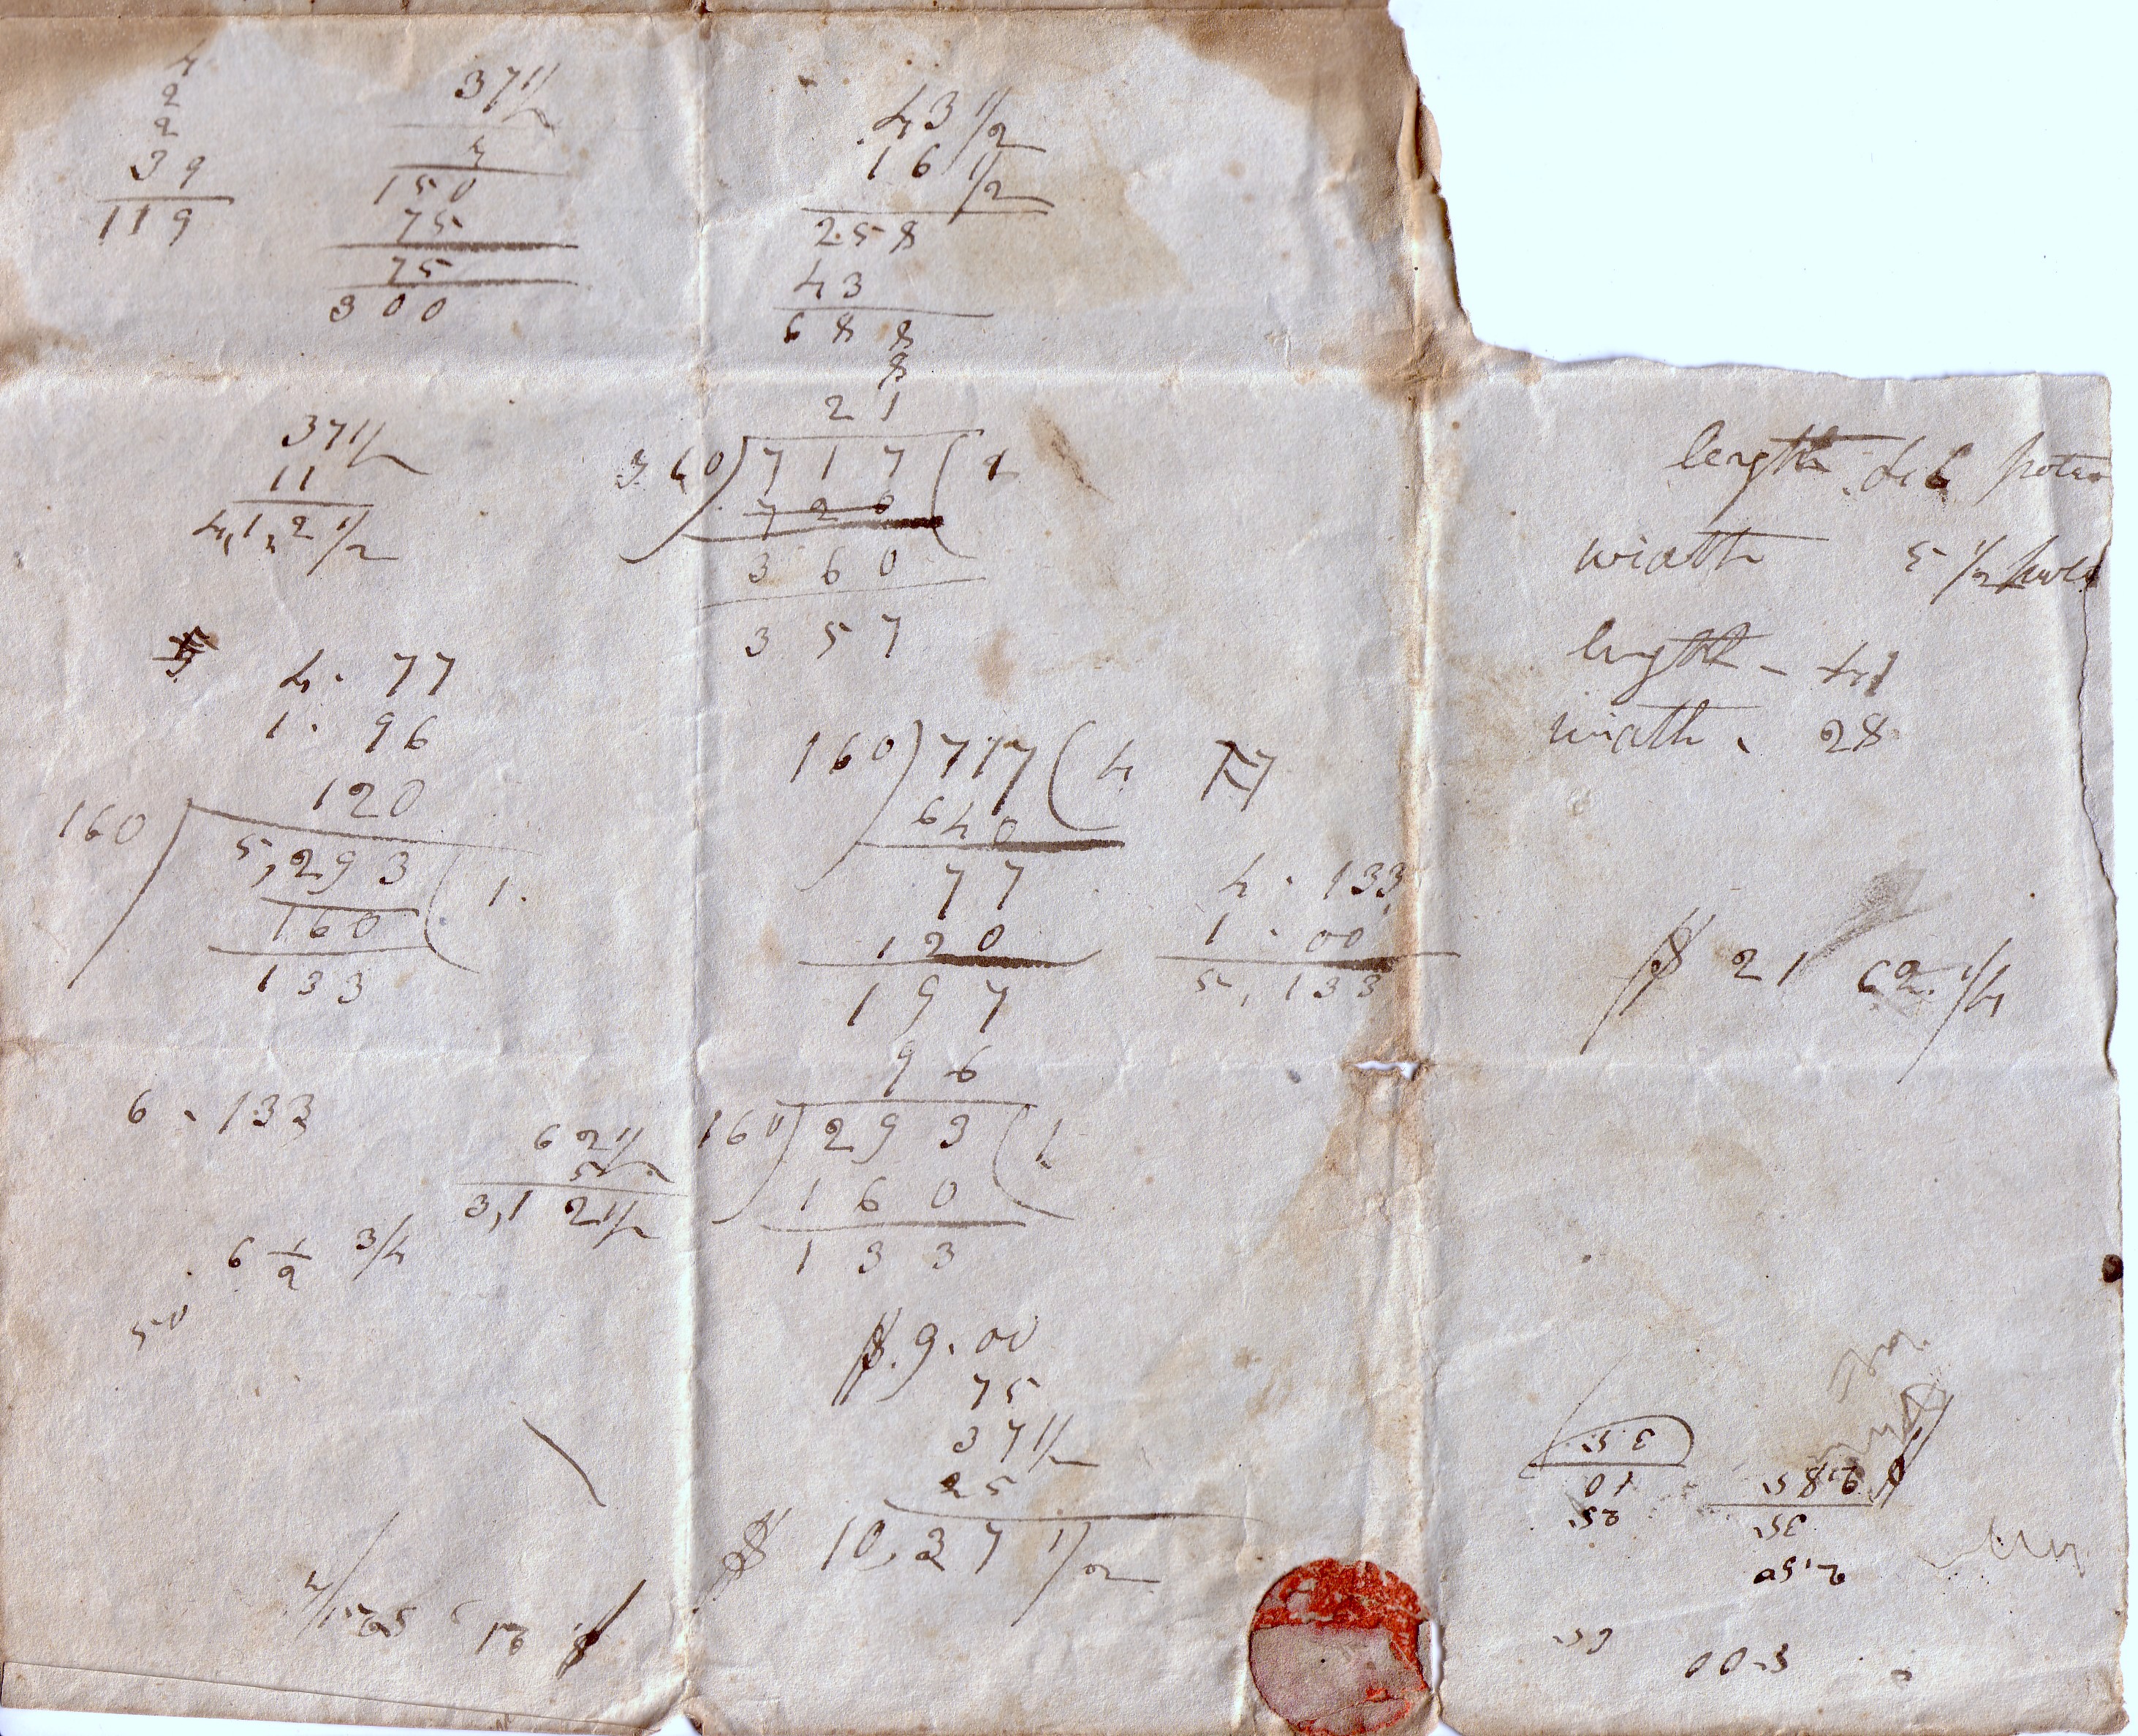 4
2
2
39
119
37 1/2
4
150
75
75
300
43 1/2
16 1/2
258
43
688
8
21
360) 717 (
720
360
357
37 1/2
11
4,12 1/2
4. 77
1. 96
120
160 5,293 ( 1.
160
133
160) 717 ( 4 77
640
77
120
197
4 . 133
1 . 00
5, 133
96
160) 293 ( 1
160
133
6 . 133
62 1/2
5
3,12 1/2
6 1/2 3/4
50
$. 9. 00
75
37 1/2
25
$ 10,37 1/2
$ 21
length 46 poles
width 5 1/2 poles
length - 41
width . 28
$ 21 62 1/4
2.50
35
$ 2.85
25
10
35